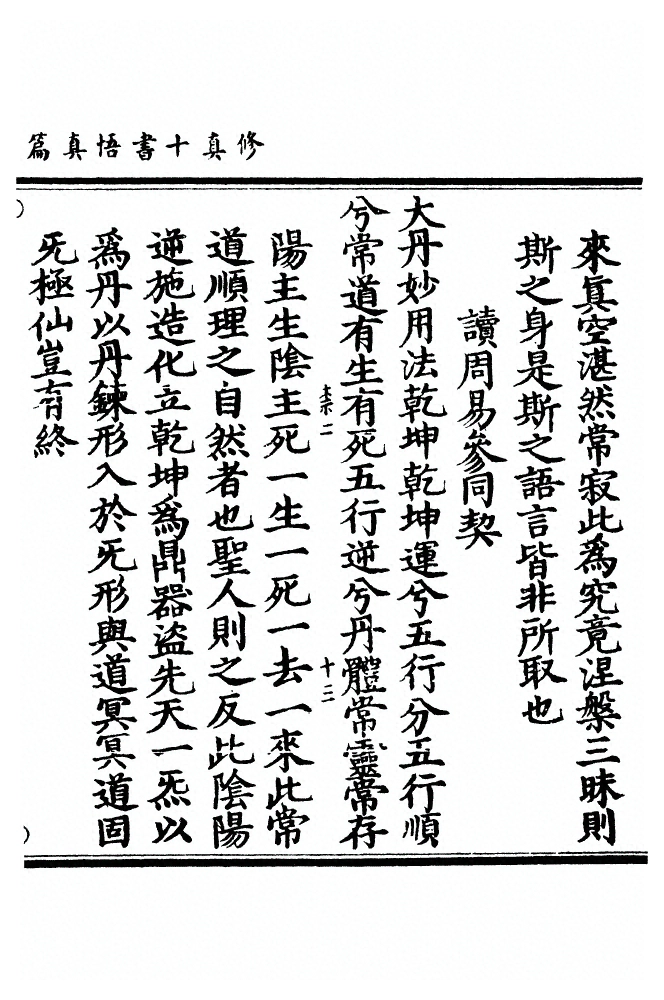 修真十書悟真篇
來真空湛然常寂此為究竟涅槃三昧則
斯之身是斯之語言皆非所取也
讀周易參同契
大丹妙用法乾坤乾坤運兮五行分五行順
兮常道有生有死五行逆兮丹體常靈常存
柰二
十二
陽主生陰主死一生一死一去一來此常
道順理之自然者也聖人則之反此陰陽
逆施造化立乾坤爲鼎器盜先天一炁以
爲丹以丹鍊形入於旡形與道冥冥道固
旡極仙豈有終